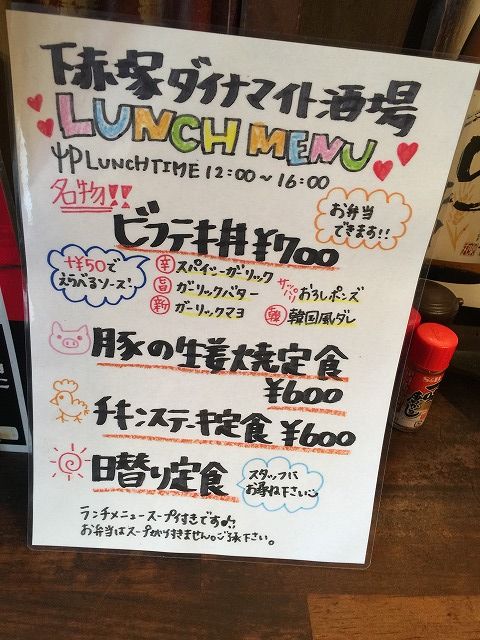 下赤塚ダイナマイト酒場
LUNCH MENU
LUNCHTIME 12:00〜16:00
名物!!
お弁当
できます!!
ビフテキ丼 ¥700
+¥50で
えらべるソース!
辛 スパイシーガーリック
旨 ガーリックバター
新 ガーリックマヨ
サッパリ おろしポンズ
韓 韓国風ダレ
豚の生姜焼定食
¥600
チキンステーキ定食 ¥600
日替り定食
スタッフに
お尋ね下さい
ランチメニュースープ付きです♪
お弁当はスープが付きません。ご了承下さい。